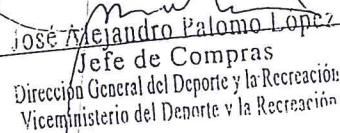 José Alejandro Palomo López
Jefe de Compras
Dirección General del Deporte y la Recreación
Viceministerio del Deporte y la Recreación